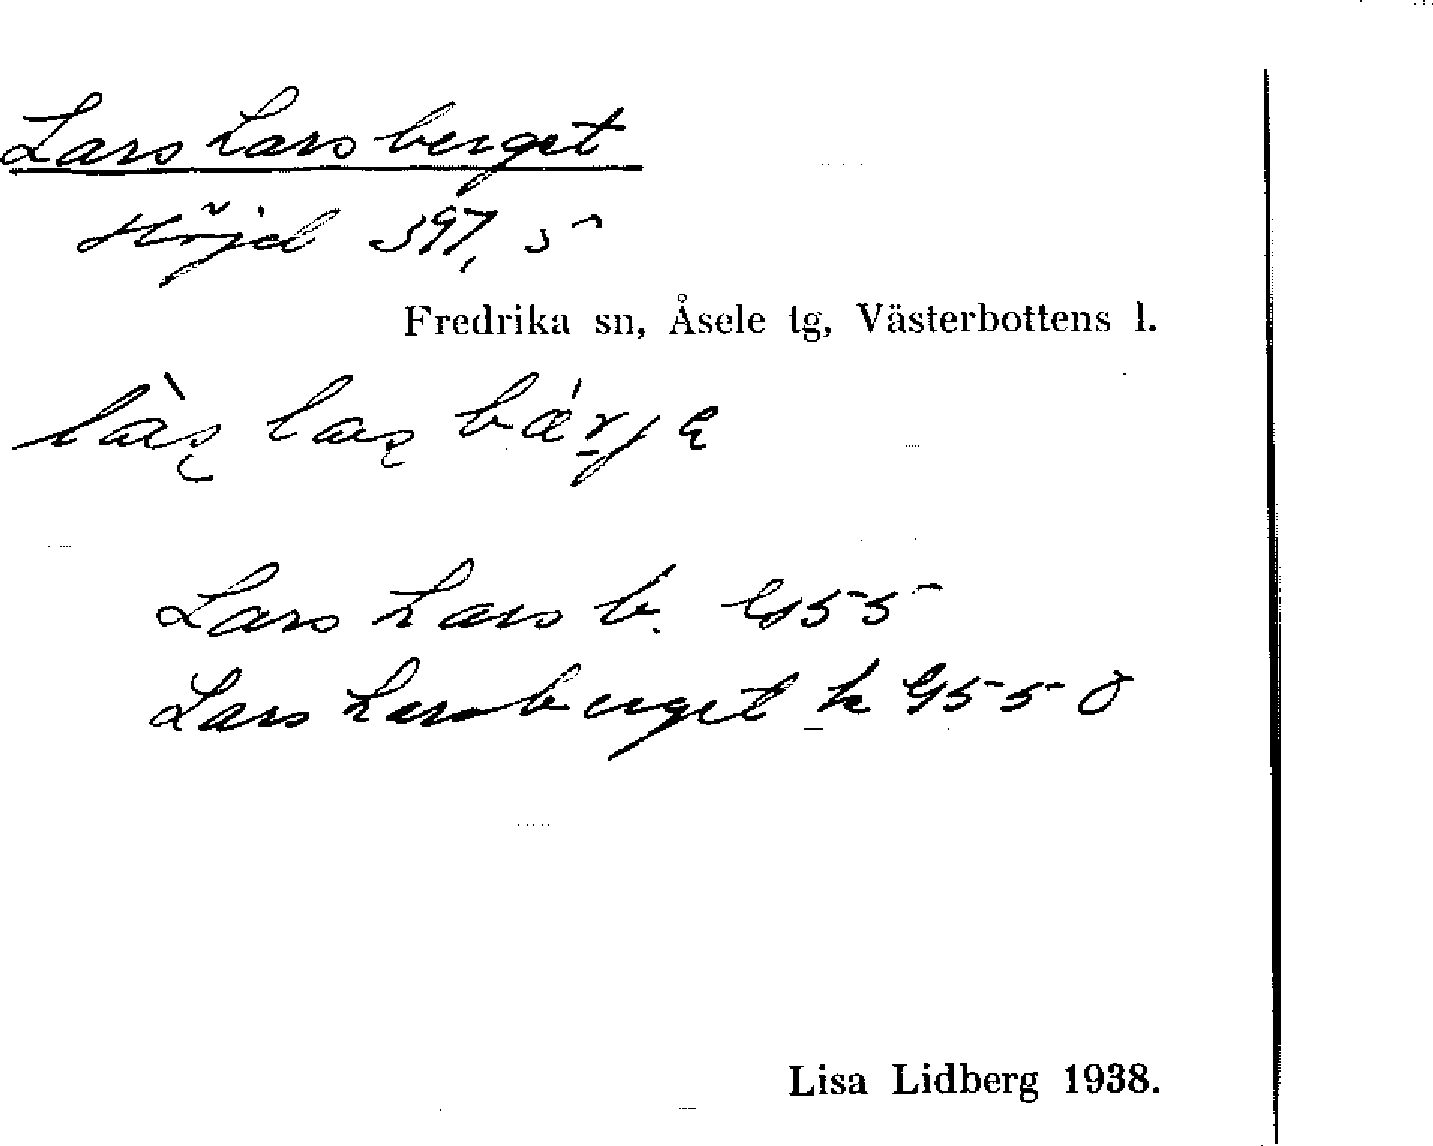 Lars Larsberget
Höjd 397,5
Fredrika sn, Åsele tg, Västerbottens l.
Lars Lars b. G55
Lars Larsberget k G55 Ö
Lisa Lidberg 1938.